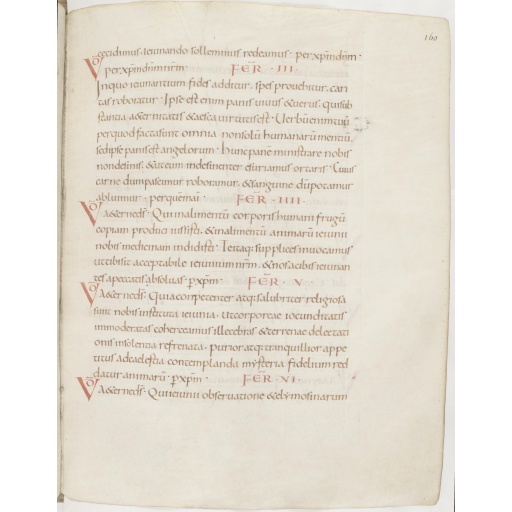 160
cecidimus. ieiunando sollemnius redeamus. per xp̄m dn̄m
per xp̄m dn̄m nr̄m FER · III ·
In quo ieiunantium fides additur. spes prouehitur. cari
tas roboratur. Ipse est enim panis uiuus & uerus. qui sub
stantia aeternitatis & aesca uirtutis est. Uerbū enim tuū
per quod facta sunt omnia. non solū humanarū mentiū.
sed ipse panis est angelorum. hunc panē ministrare nobis
non desinis. & ut eum indesinenter esuriamus ortaris. Cuius
carne dum pascimur roboramur. & sanguine dū potamur
abluimur. per quem mai FER · IIII ·
VD aeterne dS̄. Qui in alimentū corporis humani frugū
copiam produci iussisti. & in alimentū animarū ieiunii
nobis medicinam indidisti. Te itaq; supplices inuocamus
ut tibi sit acceptabile ieiuniū nr̄m. & nos a cibis ieiunan
tes a peccatis absoluas. p xp̄m. FER · V ·
VD aeterne dS̄. Quia conpetenter atq; salubriter religiosa
sunt nobis instituta ieiunia. Ut corporeae iocunditatis
immoderatas coherceamus illecebras & terrenae delectati
onis insolentia refrenata. purior atq; tranquillior appe
titus ad caelestia contemplanda mysteria fidelium red
datur animarū. p xp̄m. FER · VI ·
VD aeterne dS̄. Qui ieiunii obseruatione & elymosinarum